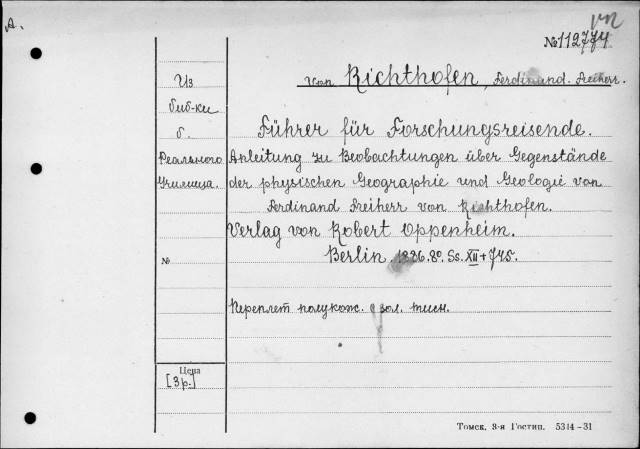 А.
vn
№112774
Из
биб-ки
б.
Реального
Училища.
№
Цена
[3р.]
von Richthofen, Ferdinand. Freiherr.
Führer für Forschungsreisende.
Anleitung zu Beobachtungen über Gegenstände
der physischen Geographie und Geologie von
Ferdinand Freiherr von Richthofen.
Verlag von Robert Oppenheim.
Berlin. 1886. 8°. Ss. XII + 745.
Переплет полукож. с зол. тисн.
Томск, 8-я Гостип. 5314-31